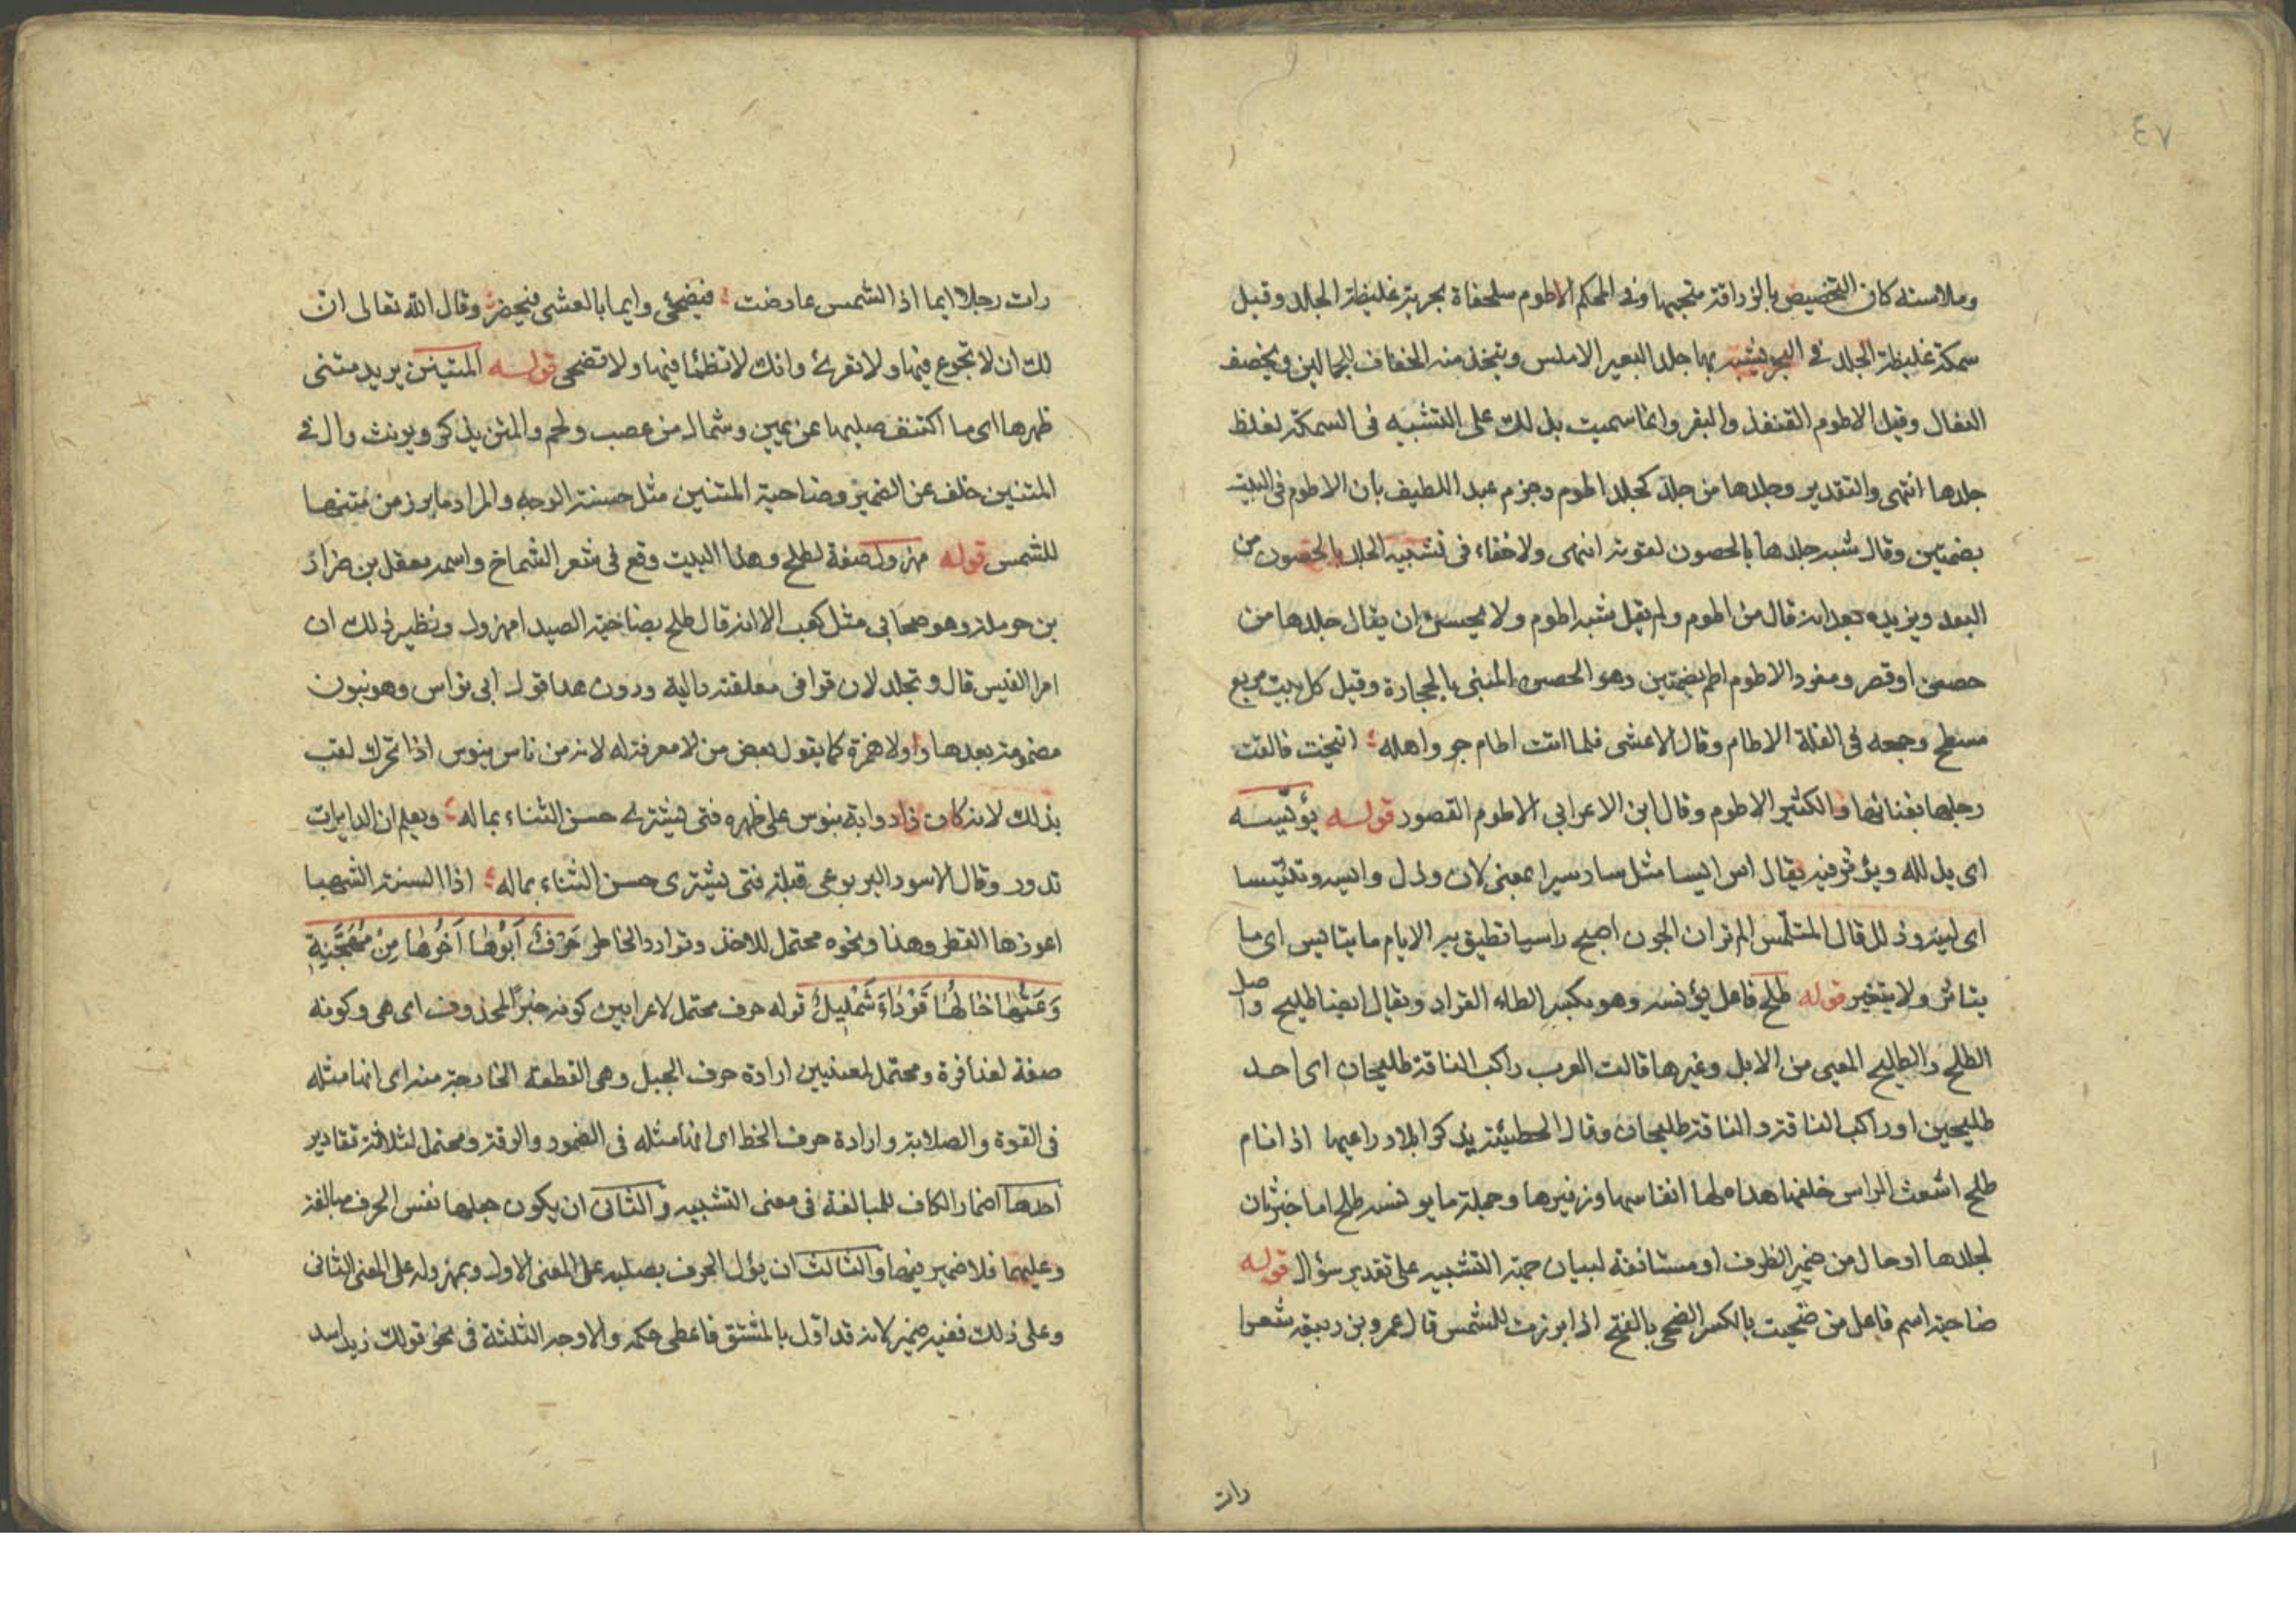 ٤٧
وملاسته كان التخصيص بالزرافة متجيها وفى المحكم الاطوم سلحفاة بحرية غليظة الجلد وقيل
سمكة غليظة الجلد فى البحر يشبه بها جلد البعير الاملس ويتخذ منه الخفاف للجمالين ويخصف
النعال وقيل الاطوم القنفذ والبقر وانما سميت بذلك على التشبيه فى السمكة لغلظ
جلدها انتهى والتقدير وجلدها من جلد كجلد اطوم وجزم عبد اللطيف بأن الاطوم فى البيت
بضمتين وقال شبه جلدها بالحصون لقوته انتهى ولا خفاء فى تشبيه الجلد بالحصون من
البعد ويزيده بعدا انه قال من اطوم ولم يقل مشبه اطوم ولا يحسن ان يقال جلدها من
حصن او قصر ومفرد الاطوم اطم بضمتين وهو الحصن المبنى بالحجارة وقيل كل بيت مربع
مسطح وجمعه فى القلة الاطام وقال الاعشى فلما اتت اطام جو واهله ؛ انيخت فالقت
رحلها بفنائها والكثير الاطوم وقال ابن الاعرابي الاطوم القصور قوله يؤيّسه
اى يذلله ويؤثر فيه يقال اس ايسا مثل سار سيرا بمعنى لان وذل وايسه وتئيسا
اى لينه وذلل قال المتلمس الم تر ان الجون اصبح راسيا تطيق به الايام ما يتايس اى ما
يتاثر ولا يتغير قوله طلح فاعل يؤيسه وهو بكسر الطاء القراد ويقال ايضا طليح واصل
الطلح والطليح المعيى من الابل وغيرها قالت العرب راكب الناقة طليحان اى احد
طليحين او راكب الناقة والناقة طليحان وقال الحطيئة يذكر ابلا وراعيها اذا نام
طلح اشعث الراس خلفها هداه لها انفاسها وزفيرها وجملة ما يويسه طلح اما خبر ثان
لجلدها او حال من ضمير الظرف او مستانفة لبيان جهة التشبيه على تقدير سؤال قوله
ضاحية اسم فاعل من ضحيت بالكسر اضحى بالفتح اذا برزت للشمس قال عمرو بن ربيعة شعرا
رات
رات رجلا ايما اذا الشمس عارضت ؛ فيضحى وايما بالعشى فيخصر وقال الله تعالى ان
لك ان لا تجوع فيها ولا تعرى وانك لا تظمأ فيها ولا تضحى قوله المتنين يريد متنى
ظهرها اى ما اكتنف صلبها عن يمين وشمال من عصب ولحم والمتن يذكر ويونث وال فى
المتنين خلف عن الضمير وضاحية المتنين مثل حسنة الوجه والمراد ما برز من متنها
للشمس قوله مهزول صفة لطلح وهذا البيت وقع فى شعر الشماخ واسمه معقل بن ضرار
بن حرملة وهو صحابي مثل كعب الا انه قال طلح بضاحية الصيداء مهزول ونظير ذلك ان
امرا القيس قال وتجلد لان قوافى معلقته دالية ودون هذا قول ابى نواس وهو بنون
مضمومة بعدها واو لا همزة كما يقول بعض من لا معرفة له لانه من ناس ينوس اذا تحرك لقب
بذلك لانه كان ذا ذوابة ينوس على ظهره فتى يشترى حسن الثناء بماله ؛ ويعلم ان الدايرات
تدور وقال الاسود اليربوعى قبله فتى يشترى حسن الثناء بماله ؛ اذا السنة الشهبا
اعوزها القطر وهذا ونحوه محتمل للاخذ وتوارد الخاطر حَرْفٌ اَبُوْهَا اَخُوْهَا مِنْ مُهَجَّنَةٍ
وَعَمُّهَا خَالُهَا قَوْدَاءُ شَمْلِيلُ قوله حرف محتمل لاعرابين كونه خبرًا لمحذوف اى هى وكونه
صفة لعذافرة ومحتمل لمعنيين ارادة حرف الجبل وهى القطعة الخارجة منه اى انها مثله
فى القوة والصلابة وارادة حرف الخط اى انها مثله فى الضمور والرقة ومحتمل لثلاثة تقادير
احدها اضمار الكاف للمبالغة فى معنى التشبيه والثانى ان يكون جعلها نفس الحرف مبالغة
وعليهما فلا ضمير فيها والثالث ان يؤل الحرف بصلبه على المعنى الاول وبمهزولة على المعنى الثانى
وعلى ذلك ففيه ضمير لانه قد اول بالمشتق فاعطى حكمه والاوجه الثلثة فى نحو قولك زيد اسد